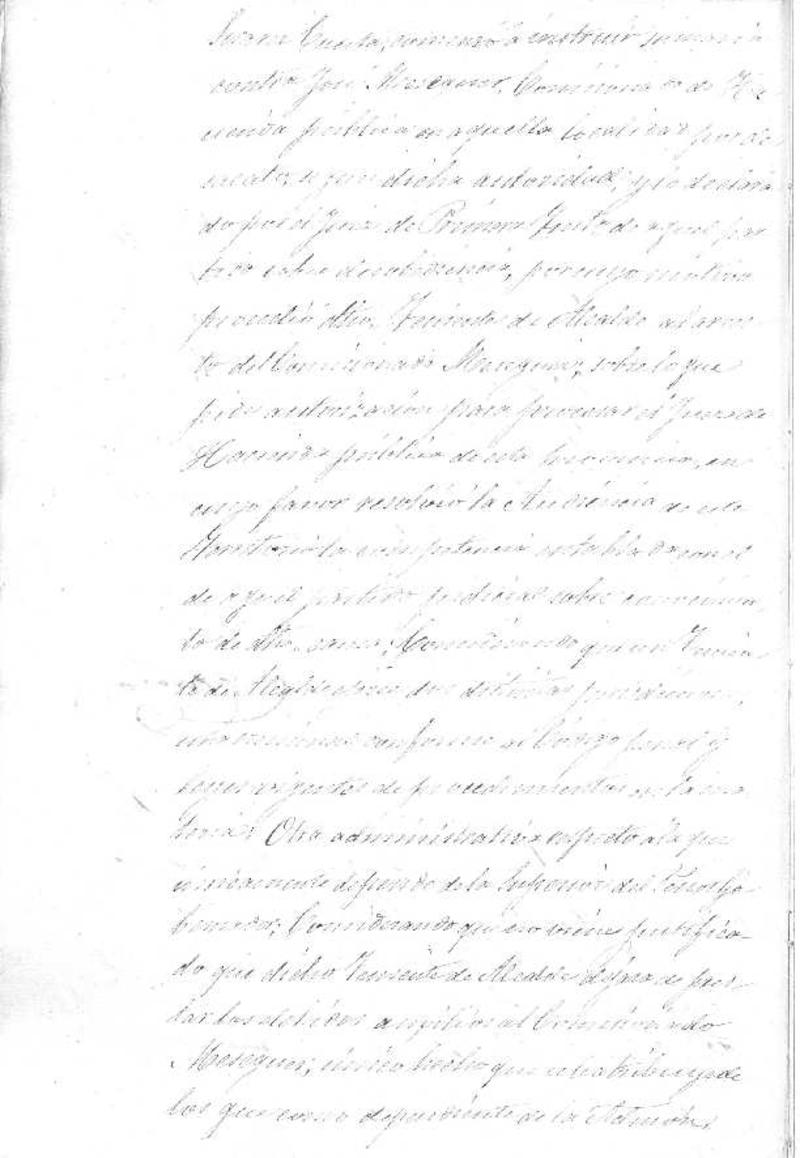 Cuesta, comenzó a instruir sumaria
contra José Meseguer, Comisionado de Ha-
cienda pública en aquella localidad por de-
sacato, según dicha autoridad, y lo declara-
do por el Juez de Primera Insta. de aquel par-
tido sobre desobediencia, por cuyo motivo
procedió dho. Teniente de Alcalde al arres-
to del Comisionado Meseguer, sobre lo que
pide autorización para procesar el Juez de
Hacienda pública de esta provincia, en
cuyo favor resolvió la Audiencia de este
Territorio la competencia entablada con el
de aquel partido judicial sobre conocimien-
to de dha. causa; Considerando que un Tenien-
te de Alcalde ejerce dos distintas
una conforme al Código penal y
leyes vigentes de procedimientos en la ma-
teria: Otra administrativa respecto a la que
únicamente depende de la Superior del Consejo
Considerando que no viene justifica-
do que dicho Teniente de Alcalde dejara de pres-
tar los debidos auxilios al Comisionado
Meseguer, único hecho que se le atribuye de
los que como dependiente de la Admón.